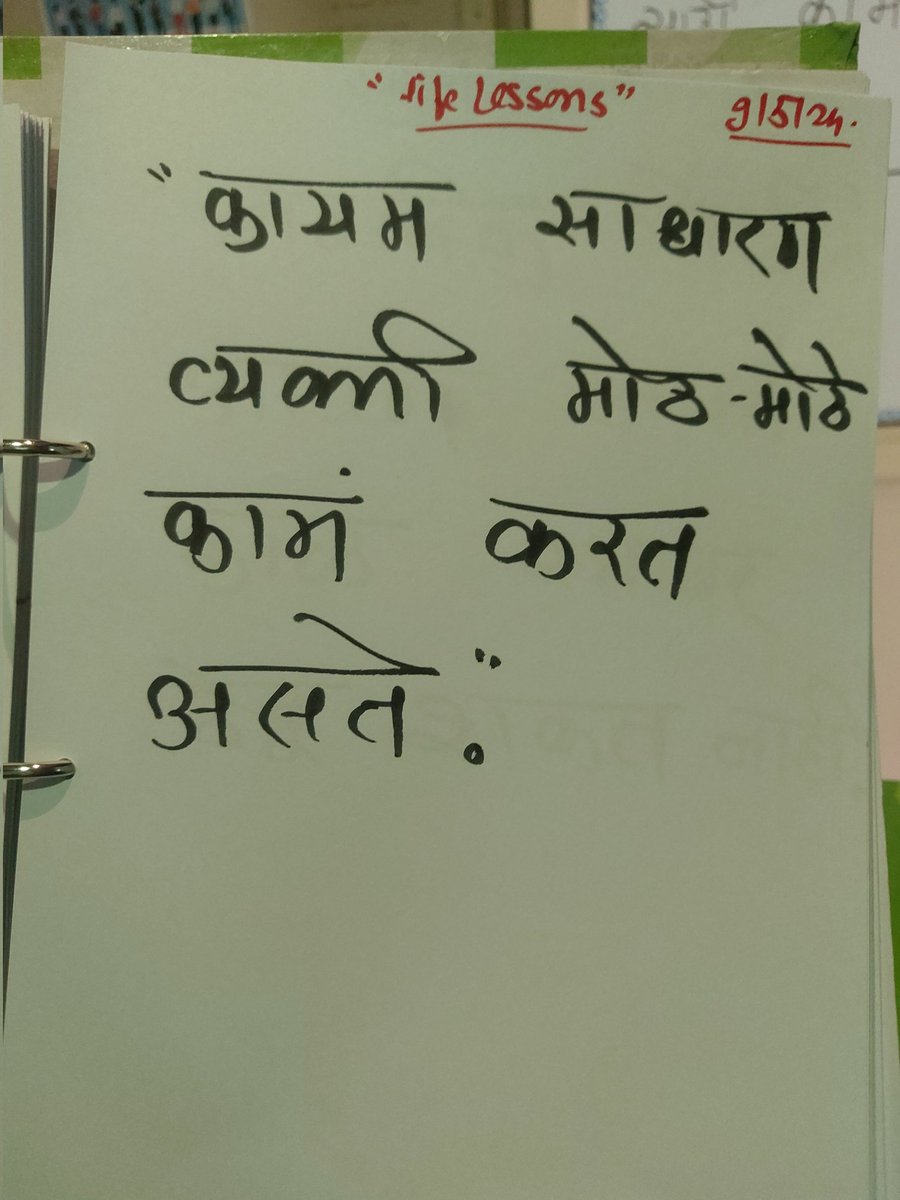 "Life Lessons" 9/5/24.
"कायम साधारण
व्यक्ती मोठे-मोठे
कामं करत
असते".